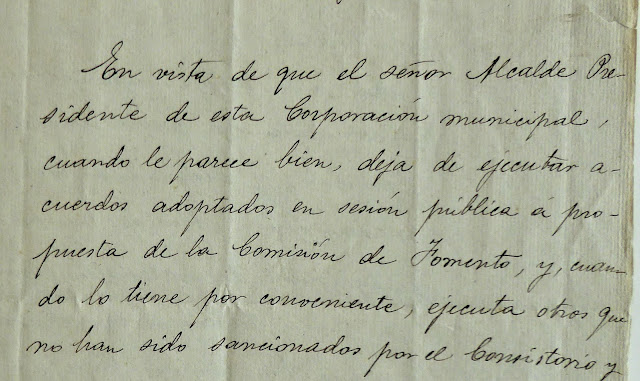 En vista de que el señor Alcalde Pre-
sidente de esta Corporación municipal,
cuando le parece bien, deja de ejecutar a-
cuerdos adoptados en sesión pública á pro-
puesta de la Comisión de Fomento, y, cuan-
do lo tiene por conveniente, ejecuta otros que
no han sido sancionados por el Consistorio y